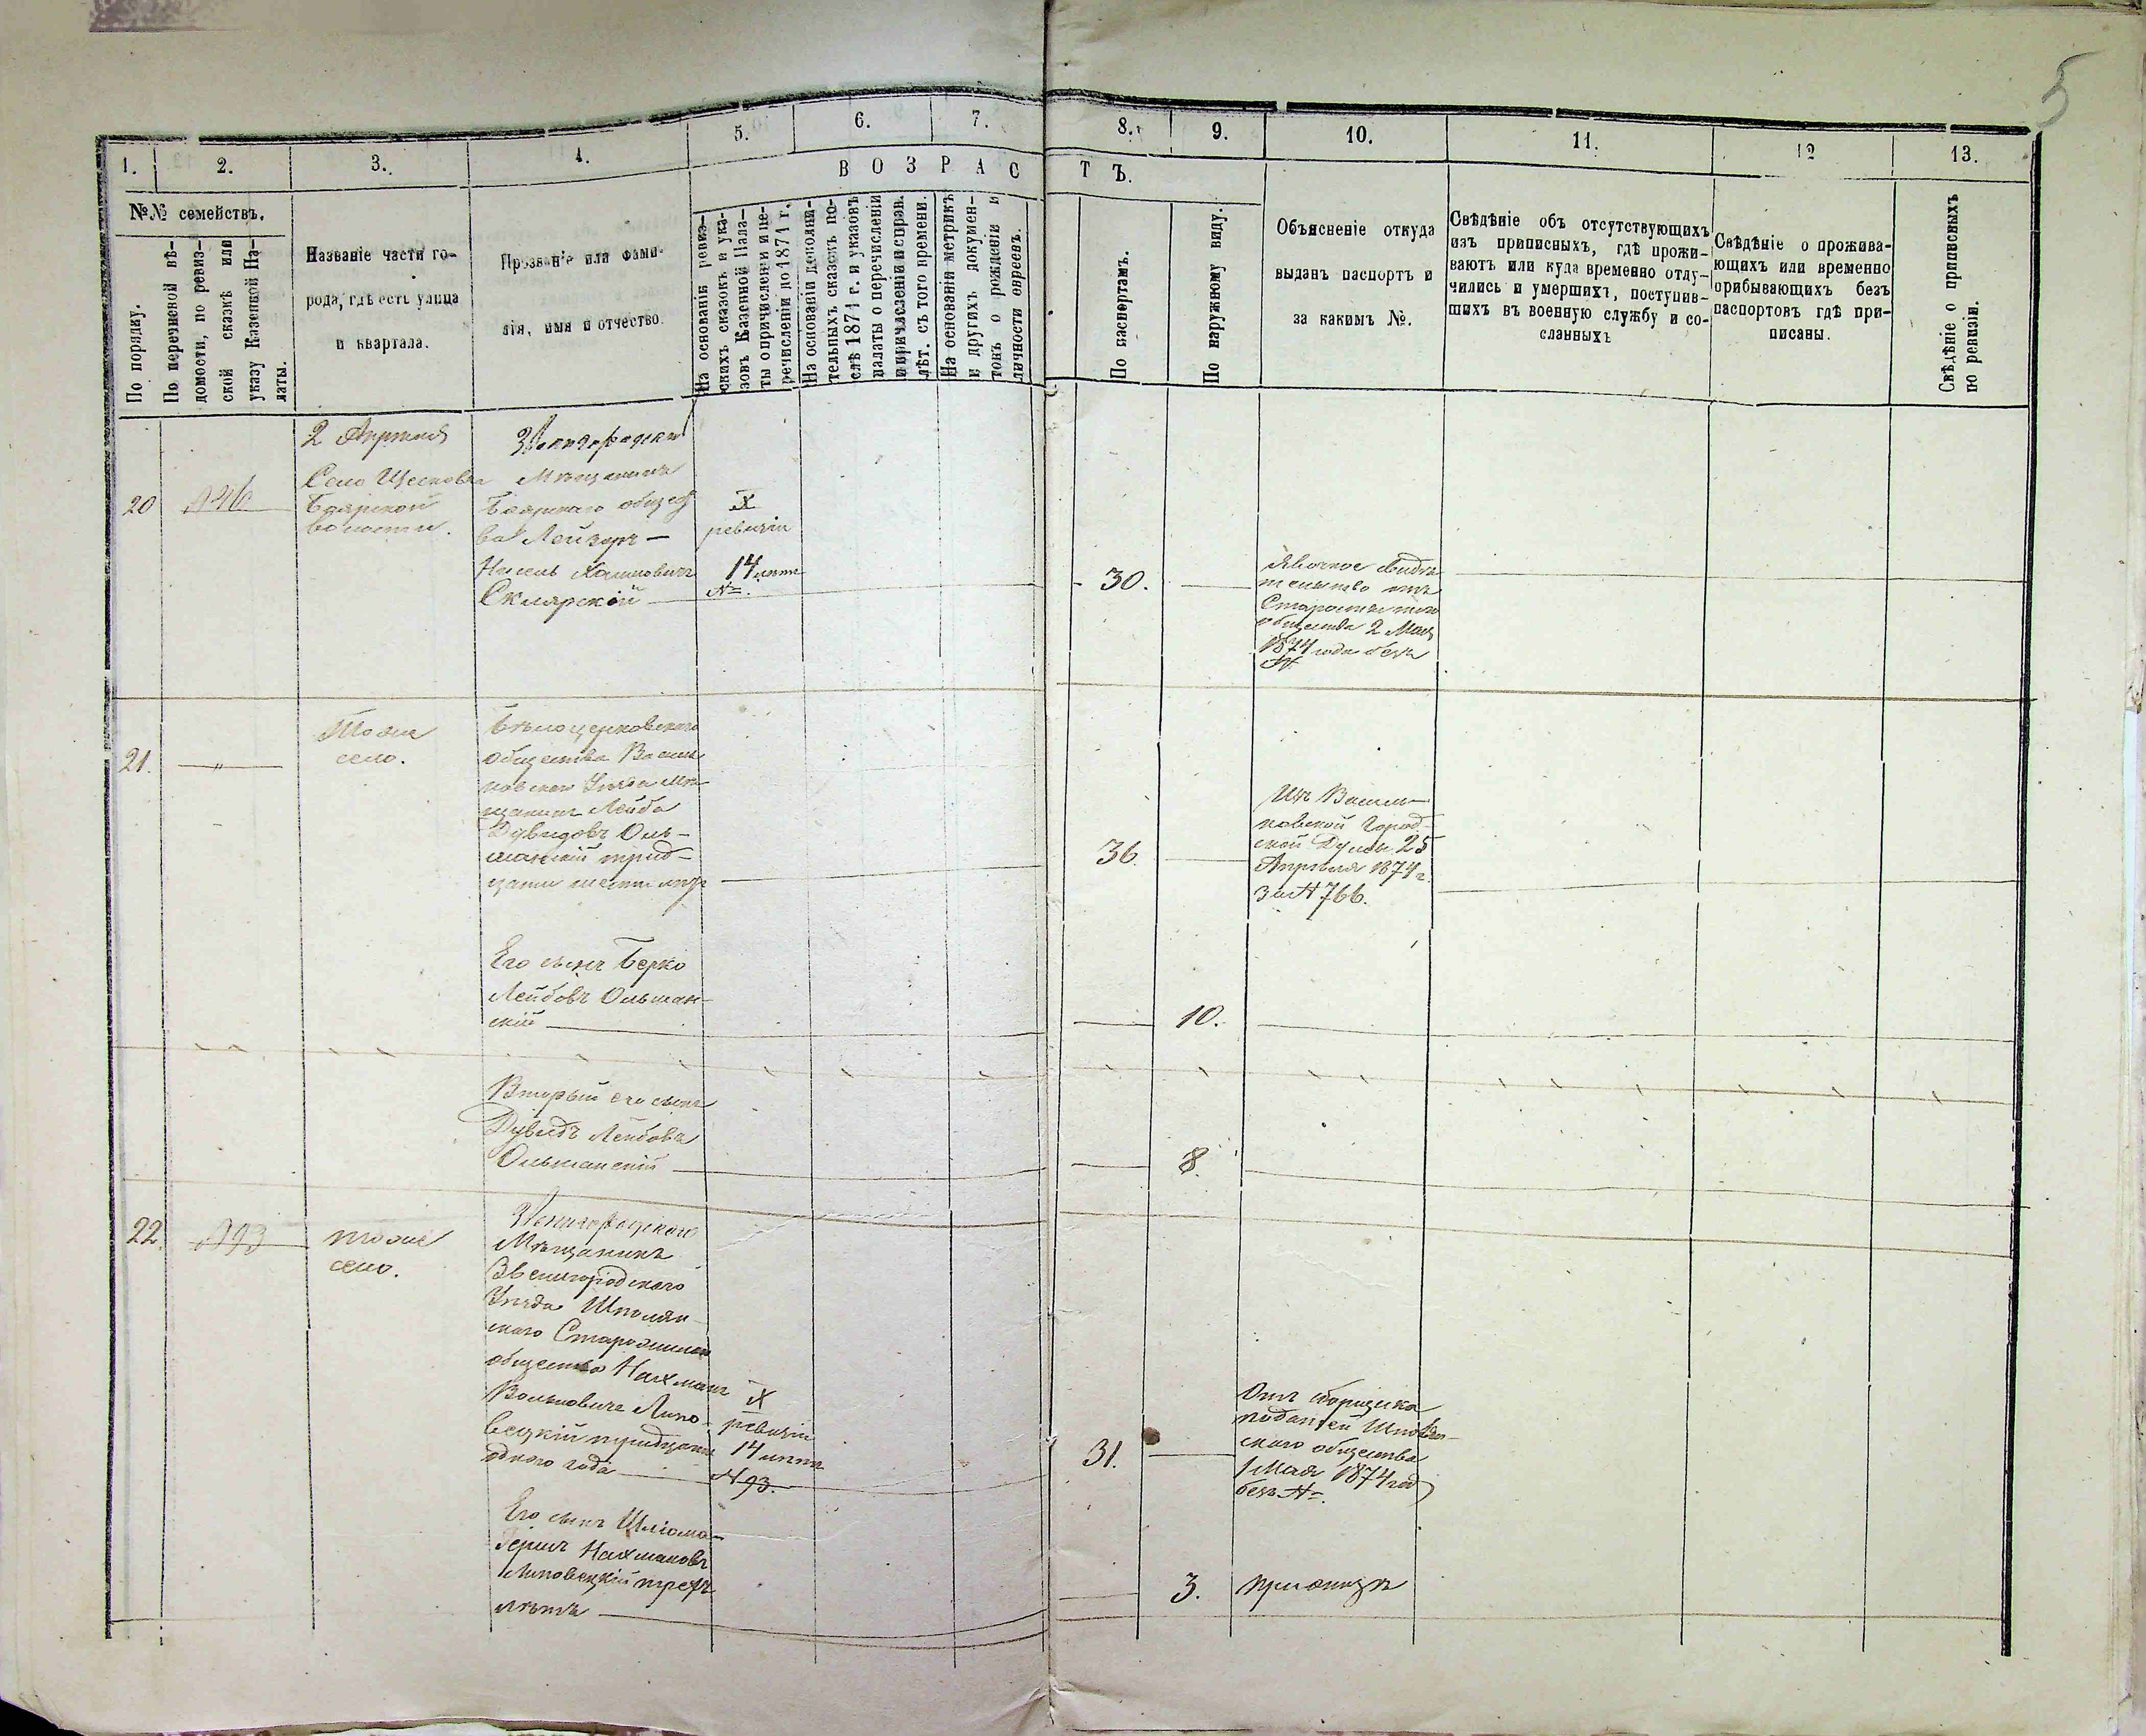 5
1.
2.
3.
4.
5.
6.
7.
8.
9.
10.
11.
12
13.
В О З Р А С Т Ъ.
№№ семействъ.
По порядку.
По перечневой вѣ-
домости, по ревиз-
ской сказкѣ или
указу Казенной Па-
латы.
Названіе части го-
рода, гдѣ есть улица
и квартала.
Прозваніе или фами-
лія, имя и отчество.
На основаніи ревиз-
скихъ сказокъ и ука-
зовъ Казенной Пала-
ты о причисленіи и пе-
речисленіи до 1871 г.
На основаніи дополни-
тельныхъ сказокъ по-
слѣ 1871 г. и указовъ
палаты о перечисленіи
и причисленіи и справ.
лѣт. съ того времени.
На основаніи метрикъ
и другихъ докумен-
товъ о рожденіи и
личности евреевъ.
По паспортамъ.
По наружному виду.
Объясненіе откуда
выданъ паспортъ и
за какимъ №.
Свѣдѣніе объ отсутствующихъ
изъ приписныхъ, гдѣ прожи-
ваютъ или куда временно отлу-
чились и умершихъ, поступив-
шихъ въ военную службу и со-
сланныхъ
Свѣдѣніе о прожива-
ющихъ или временно
прибывающихъ безъ
паспортовъ гдѣ при-
писаны.
Свѣдѣніе о приписныхъ
по ревизіи.
20
2 Апреля
Село
Боярской
волости.
Звенигородскій
Мѣщанинъ
Боярскаго общест
ва Лейзеръ —
Нысель Хаимовичъ
Склярскій
X
ревизіи
14 лѣтъ
№.
30.
Явочное свидѣ
тельство отъ
Старосты того
общества 2 Мая
1874 года безъ
№.
21.
"
Тоже
село.
Бѣлоцерковскаго
общества Василь
ковскаго Уѣзда мѣ
щанинъ Лейба
Дувидовъ Оль-
шанскій трид-
цати шести лѣтъ
36
Изъ Василь-
ковской Город-
ской Думы 25
Апрѣля 1874 г.
за № 766.
Его сынъ Берко
Лейбовъ Ольшан-
скій
10.
Вторый его сынъ
Дувидъ Лейбовъ
Ольшанскій
8.
22.
№93
тоже
село.
Звенигородскаго
Мѣщанинъ
Звенигородскаго
Уѣзда Шполян-
скаго
общества Нахманъ
Вольковичъ Липо-
вецкій тридцати
одного года
X
ревизіи
14 лѣтъ
№ 93.
31.
Отъ сборщика
податей
скаго общества
1 Мая 1874 год
безъ №.
Его сынъ Шліома-
Гершъ Нахмановъ
Липовецкій трехъ
лѣтъ
3.